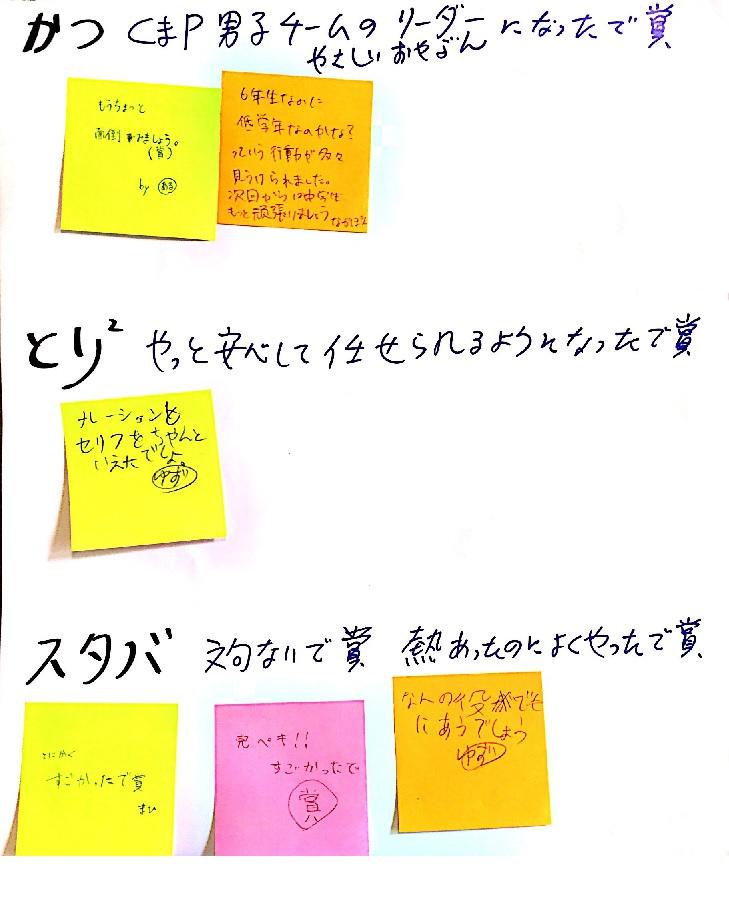 かつ くまP 男子チームの リーダー になったで賞
やさしい おやぶん
もうちょっと
面倒みましょう。
(賞)
by
6年生なのに
低学年なのかな？
っていう行動が多々
見うけられました。
次回からは中学生
もっと頑張りましょう
とり² やっと安心して任せられるようになったで賞
ナレーションも
セリフをちゃんと
いえたでしょ。
ゆずり
スタバ 文句ないで賞 熱あったのによくやったで賞
とにかく
すごかったで賞
まひ
完ペキ!!
すごかったで
賞
なんの役がでも
にあうでしょう
ゆずり